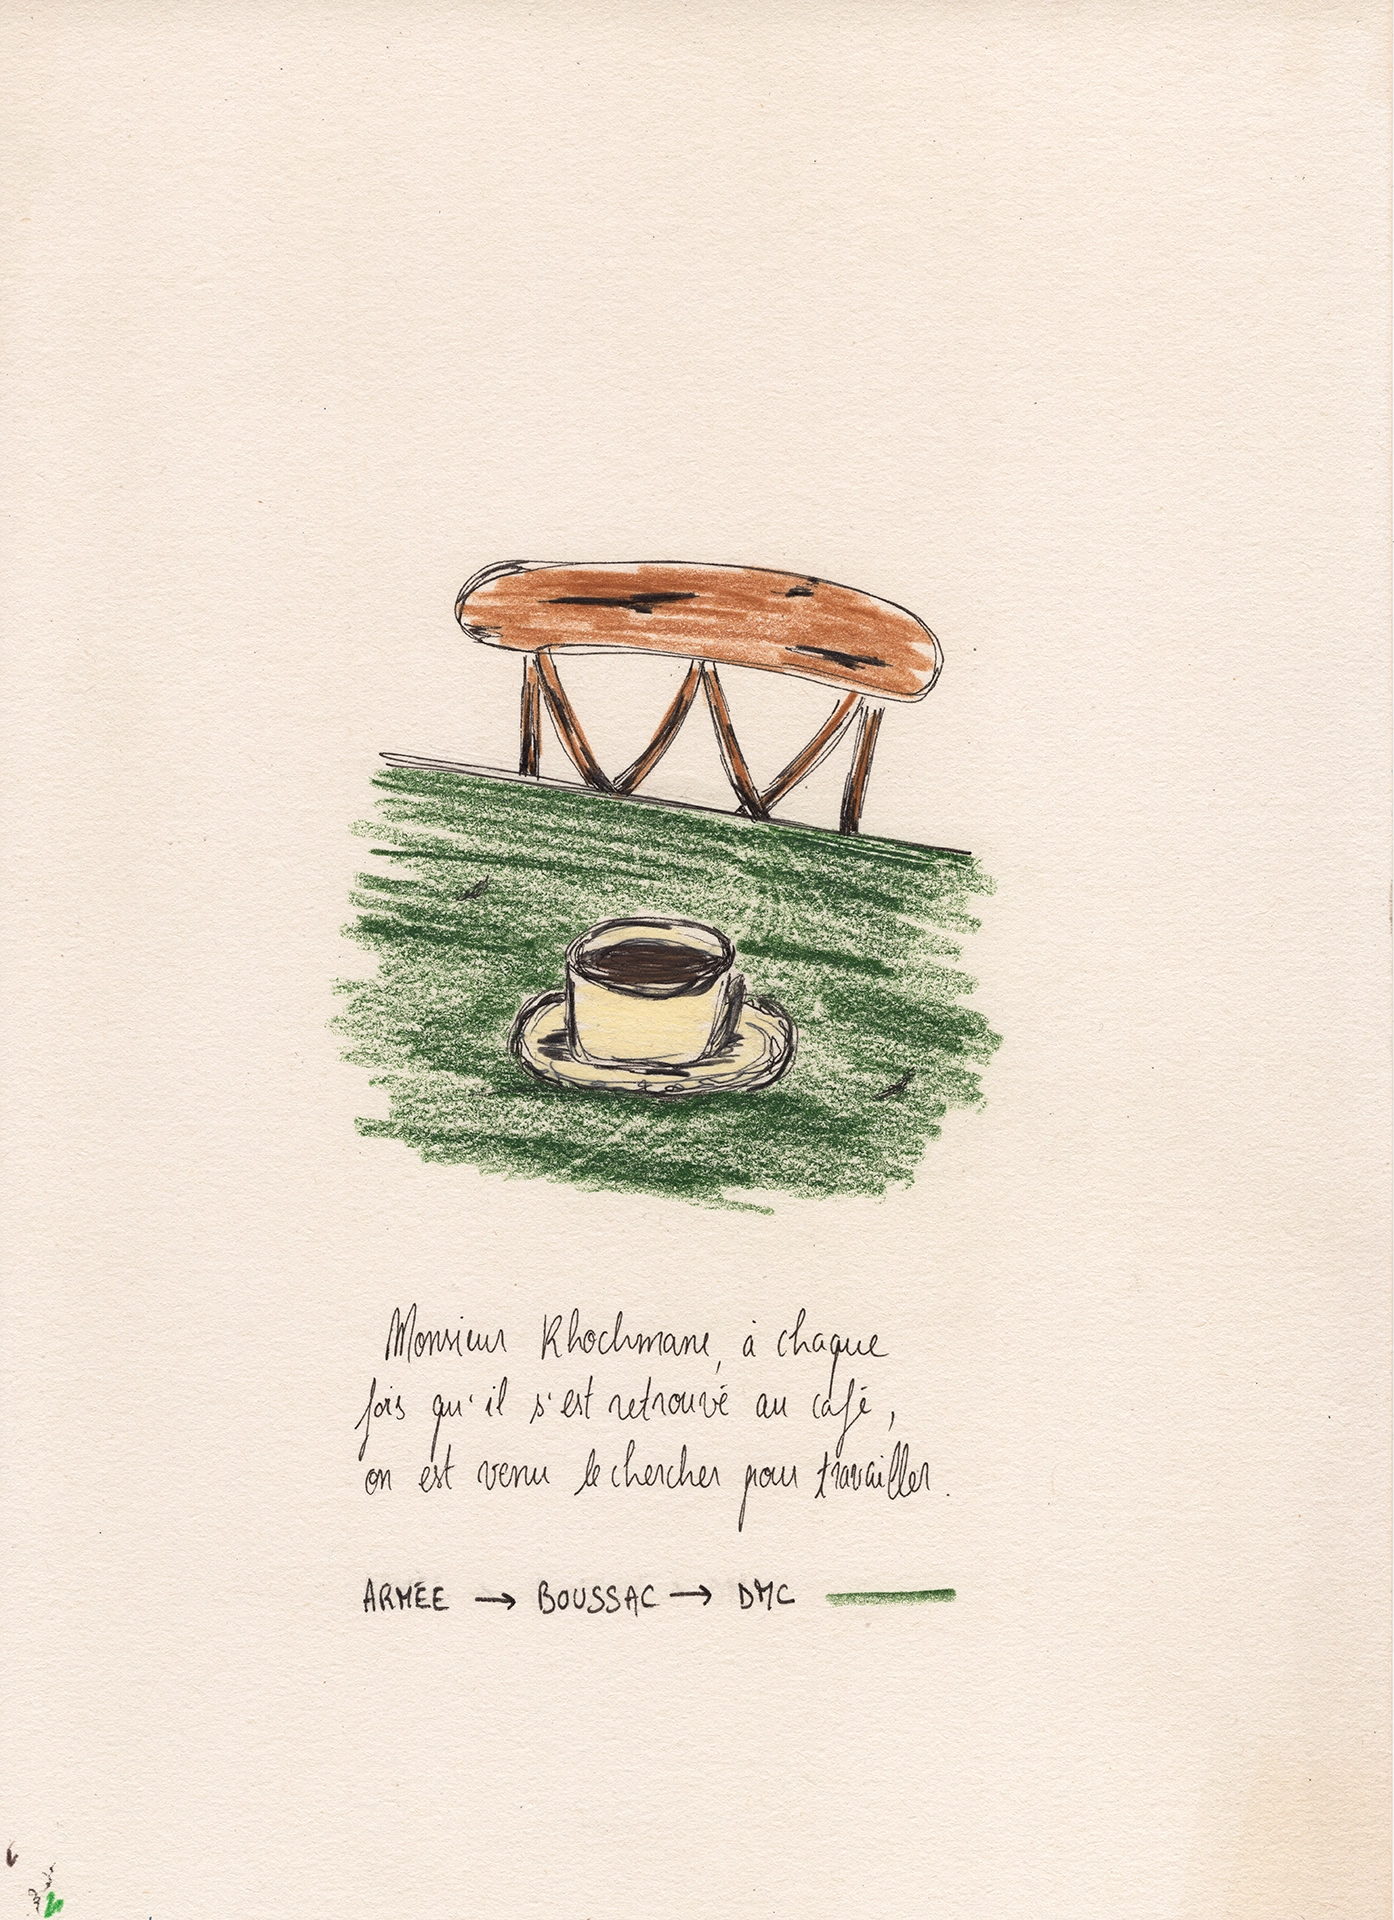 Monsieur Khochmane, à chaque
fois qu'il s'est retrouvé au café,
on est venu le chercher pour travailler.
ARMÉE → BOUSSAC → DMC